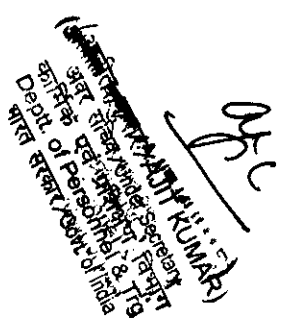 AJIT KUMAR)
अवर सचिव/Under Secretary
कार्मिक एवं प्रशिक्षण विभाग
Deptt. of Personnel & Trg
भारत सरकार/Govt. of India